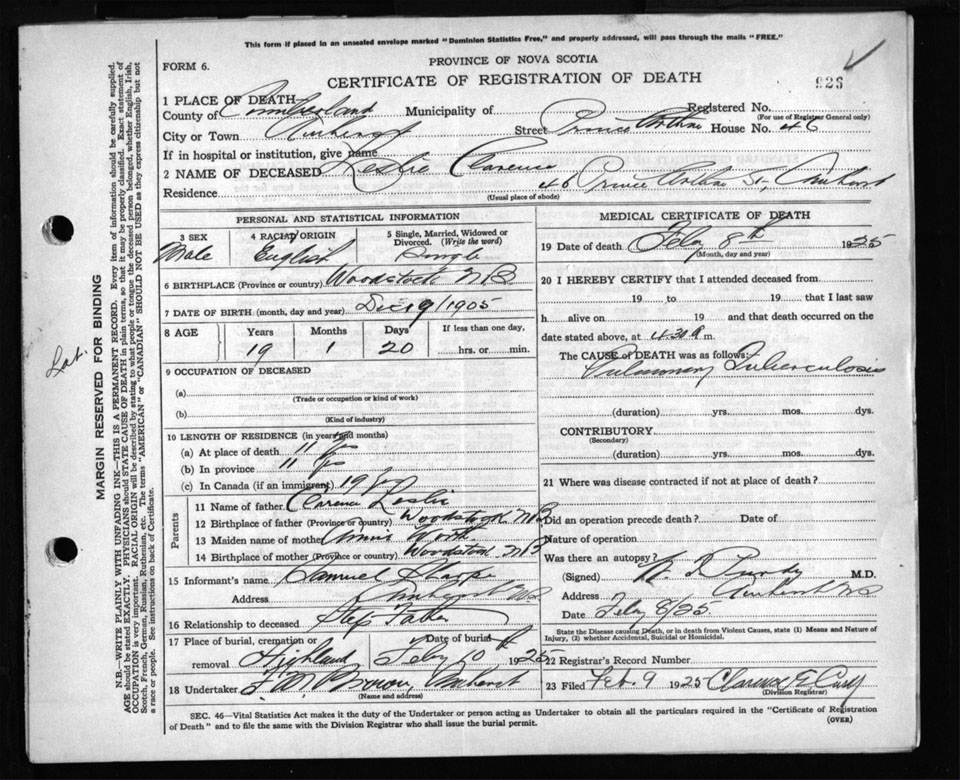 This form if placed in an unsealed envelope marked "Dominion Statistics Free," and properly addressed, will pass through the mails "FREE."
FORM 6.
PROVINCE OF NOVA SCOTIA
CERTIFICATE OF REGISTRATION OF DEATH
926
1 PLACE OF DEATH—
County of Cumberland Municipality of Registered No.
(For use of Registrar General only)
City or Town Amherst Street Prince Arthur House No. 46
If in hospital or institution, give name
2 NAME OF DECEASED Leslie Clarence
Residence 46 Prince Arthur St., Amherst
(Usual place of abode)
PERSONAL AND STATISTICAL INFORMATION
3 SEX 4 RACIAL ORIGIN 5 Single, Married, Widowed or Divorced. (Write the word)
Male English Single
6 BIRTHPLACE (Province or country) Woodstock N B
7 DATE OF BIRTH (month, day and year) Dec 19/1905
8 AGE Years Months Days If less than one day,
19 1 20 hrs. or min.
9 OCCUPATION OF DECEASED
(a)
(Trade or occupation or kind of work)
(b)
(Kind of industry)
10 LENGTH OF RESIDENCE (in years and months)
(a) At place of death 11 yrs
(b) In province 11 yrs
(c) In Canada (if an immigrant) 19 yrs
Parents
11 Name of father Clarence Leslie
12 Birthplace of father (Province or country) Woodstock N B
13 Maiden name of mother Annie
14 Birthplace of mother (Province or country) Woodstock N B
15 Informant's name Samuel
Address Amherst N S
16 Relationship to deceased Step Father
17 Place of burial, cremation or removal Highland Date of burial Feby 10th 1925
18 Undertaker F. M. Brown, Amherst
(Name and address)
MEDICAL CERTIFICATE OF DEATH
19 Date of death Feby 8th 1925
(Month, day and year)
20 I HEREBY CERTIFY that I attended deceased from
19 to 19 that I last saw
h alive on 19 and that death occurred on the
date stated above, at 4.30 a m.
The CAUSE of DEATH was as follows:
Pulmonary Tuberculosis
(duration) yrs. mos. dys.
CONTRIBUTORY
(Secondary)
(duration) yrs. mos. dys.
21 Where was disease contracted if not at place of death?
Did an operation precede death? Date of
Nature of operation
Was there an autopsy?
(Signed) Purdy M.D.
Address Amherst N S
Date Feby 8/25
State the Disease causing Death, or in death from Violent Causes, state (1) Means and Nature of Injury, (2) whether Accidental, Suicidal or Homicidal.
22 Registrar's Record Number
23 Filed Feb. 9 1925 Clarence E
(Division Registrar)
SEC. 46—Vital Statistics Act makes it the duty of the Undertaker or person acting as Undertaker to obtain all the particulars required in the "Certificate of Registration
of Death" and to file the same with the Division Registrar who shall issue the burial permit. (OVER)
MARGIN RESERVED FOR BINDING
N.B.—WRITE PLAINLY WITH UNFADING INK—THIS IS A PERMANENT RECORD. Every item of information should be carefully supplied.
AGE should be stated EXACTLY. PHYSICIANS should STATE CAUSE OF DEATH in plain terms, so that it may be properly classified. Exact statement of
OCCUPATION is very important. RACIAL ORIGIN will be described by stating to what people or tongue the deceased person belonged, whether English, Irish,
Scotch, French, German, Russian, Ruthenian, etc. The terms "AMERICAN" or "CANADIAN" SHOULD NOT BE USED as they express citizenship but not
a race or people. See instructions on back of Certificate.